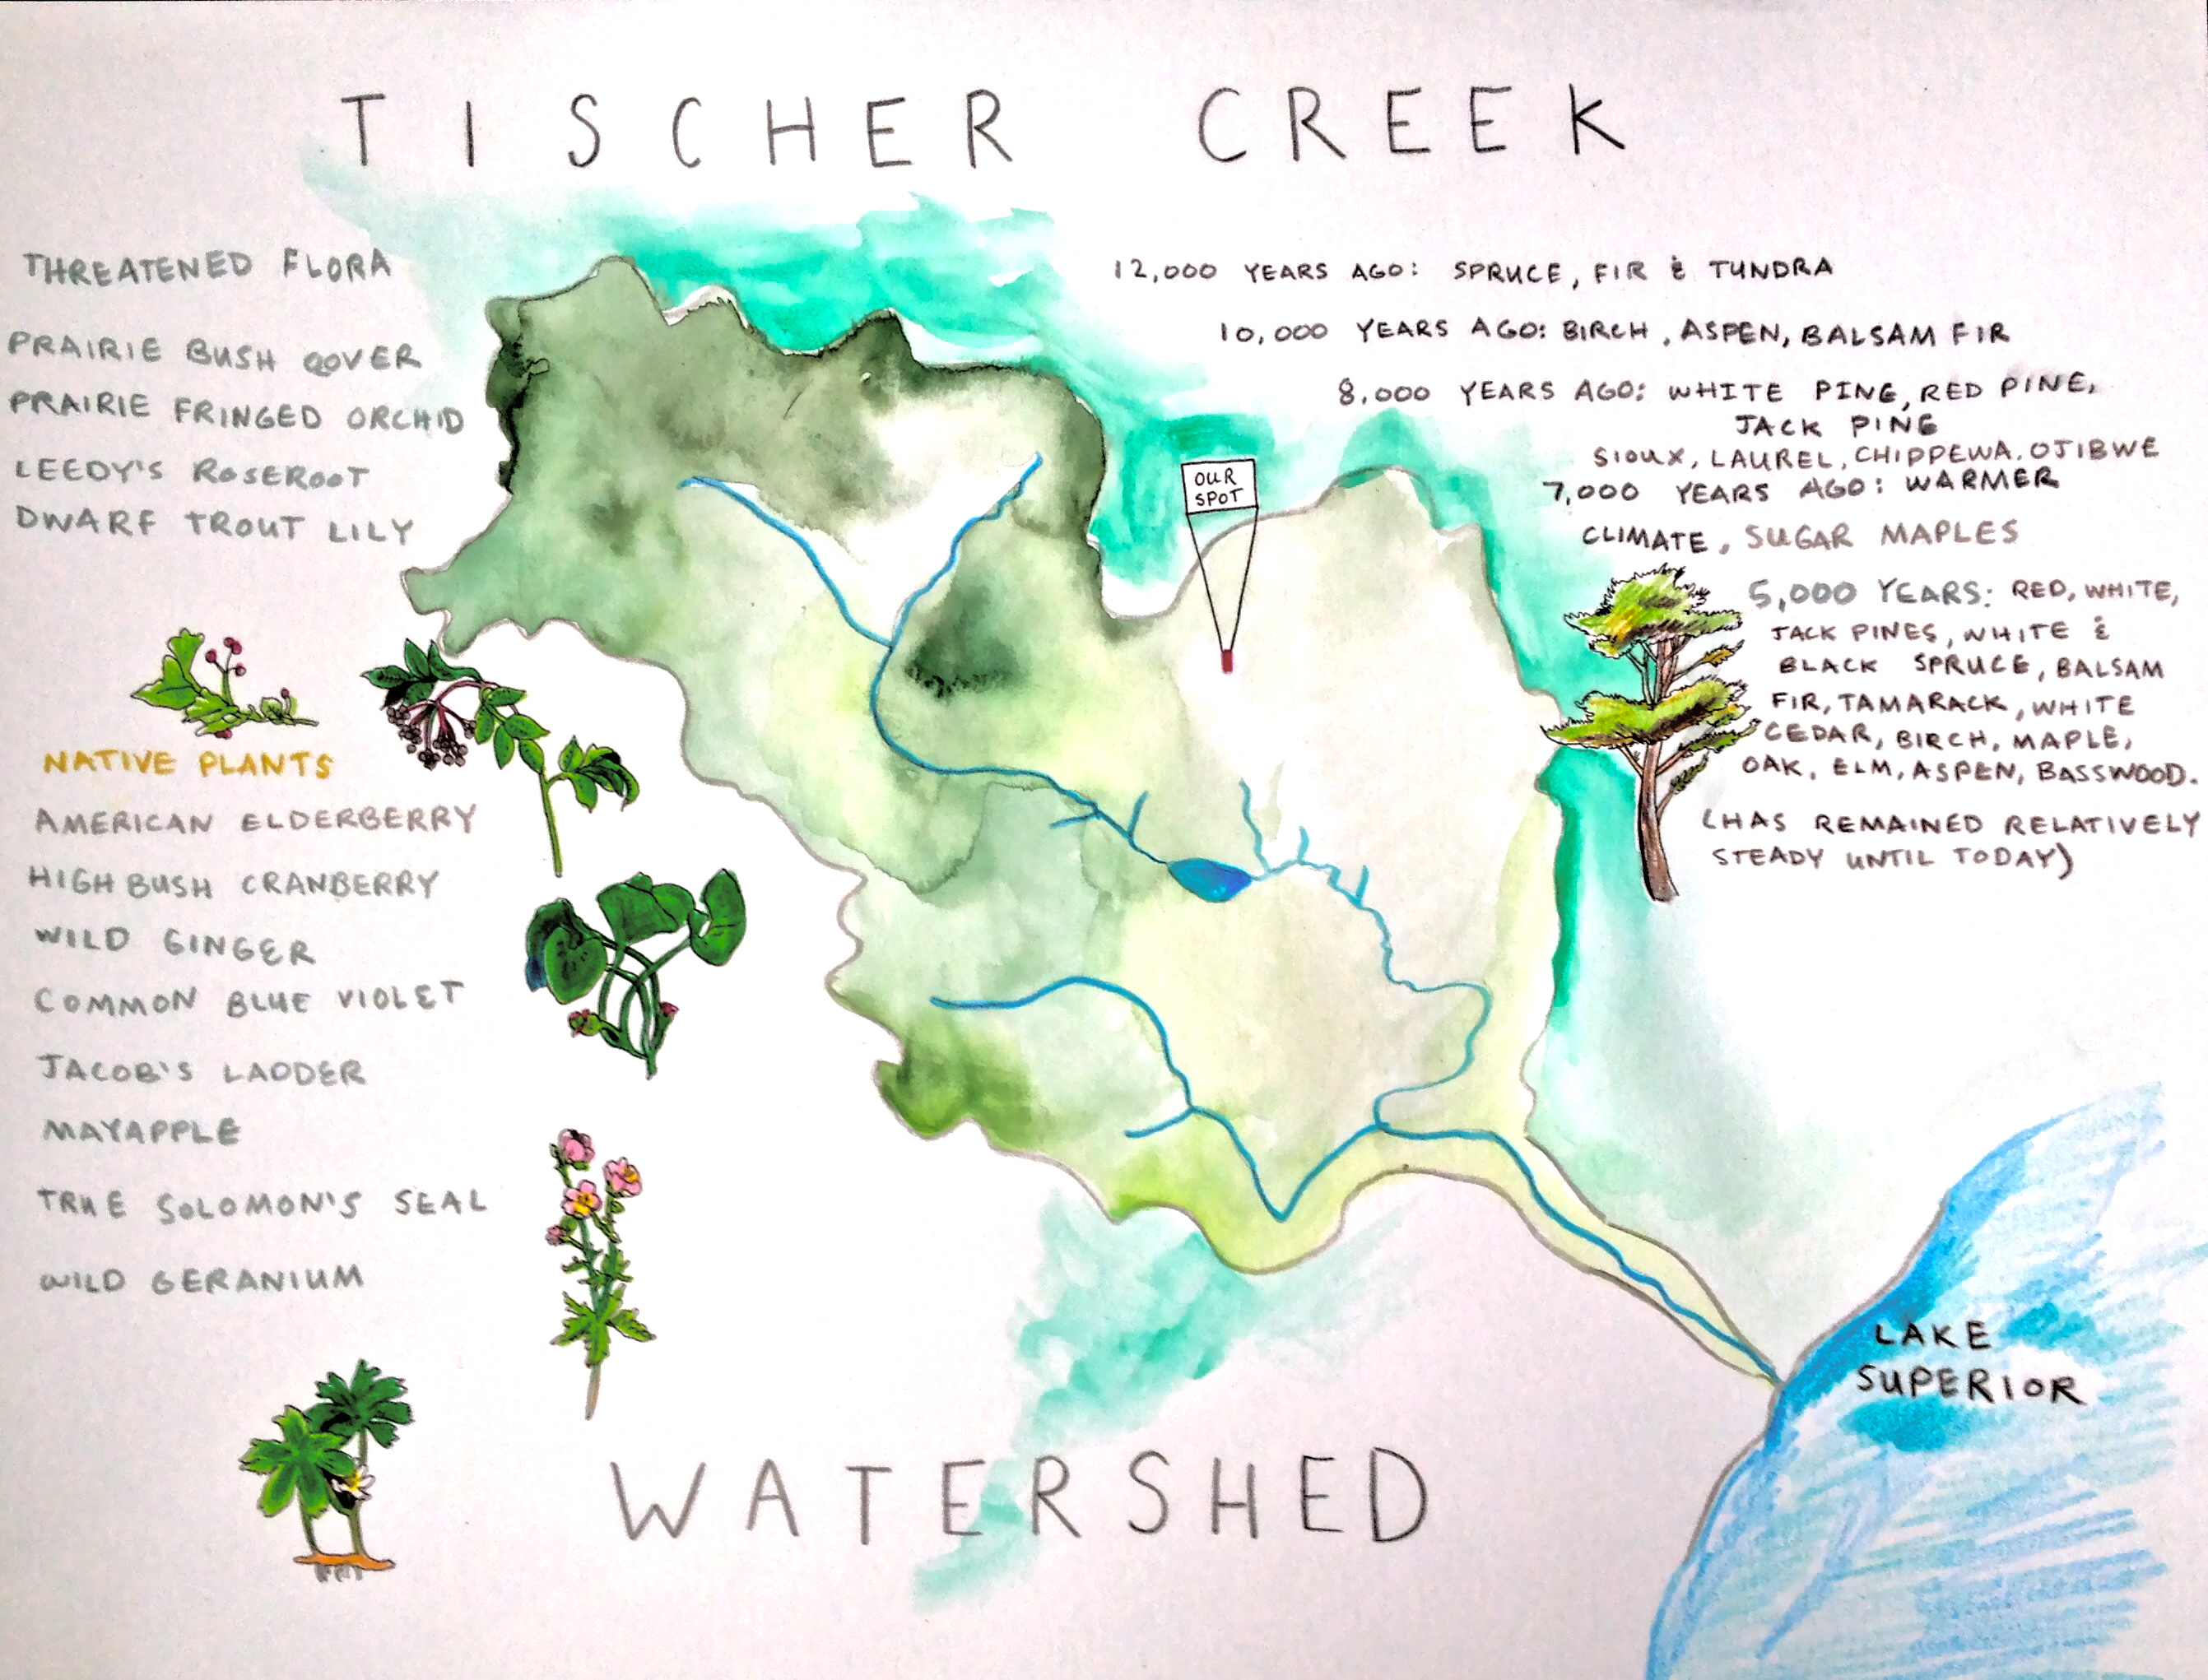 TISCHER CREEK
THREATENED FLORA
PRAIRIE BUSH CLOVER
PRAIRIE FRINGED ORCHID
LEEDY'S ROSEROOT
DWARF TROUT LILY
NATIVE PLANTS
AMERICAN ELDERBERRY
HIGH BUSH CRANBERRY
WILD GINGER
COMMON BLUE VIOLET
JACOB'S LADDER
MAYAPPLE
TRUE SOLOMON'S SEAL
WILD GERANIUM
OUR
SPOT
12,000 YEARS AGO: SPRUCE, FIR & TUNDRA
10,000 YEARS AGO: BIRCH, ASPEN, BALSAM FIR
8,000 YEARS AGO: WHITE PINE, RED PINE,
JACK PINE
SIOUX, LAUREL, CHIPPEWA, OJIBWE
7,000 YEARS AGO: WARMER
CLIMATE, SUGAR MAPLES
5,000 YEARS: RED, WHITE,
JACK PINES, WHITE &
BLACK SPRUCE, BALSAM
FIR, TAMARACK, WHITE
CEDAR, BIRCH, MAPLE,
OAK, ELM, ASPEN, BASSWOOD.
(HAS REMAINED RELATIVELY
STEADY UNTIL TODAY)
LAKE
SUPERIOR
WATERSHED